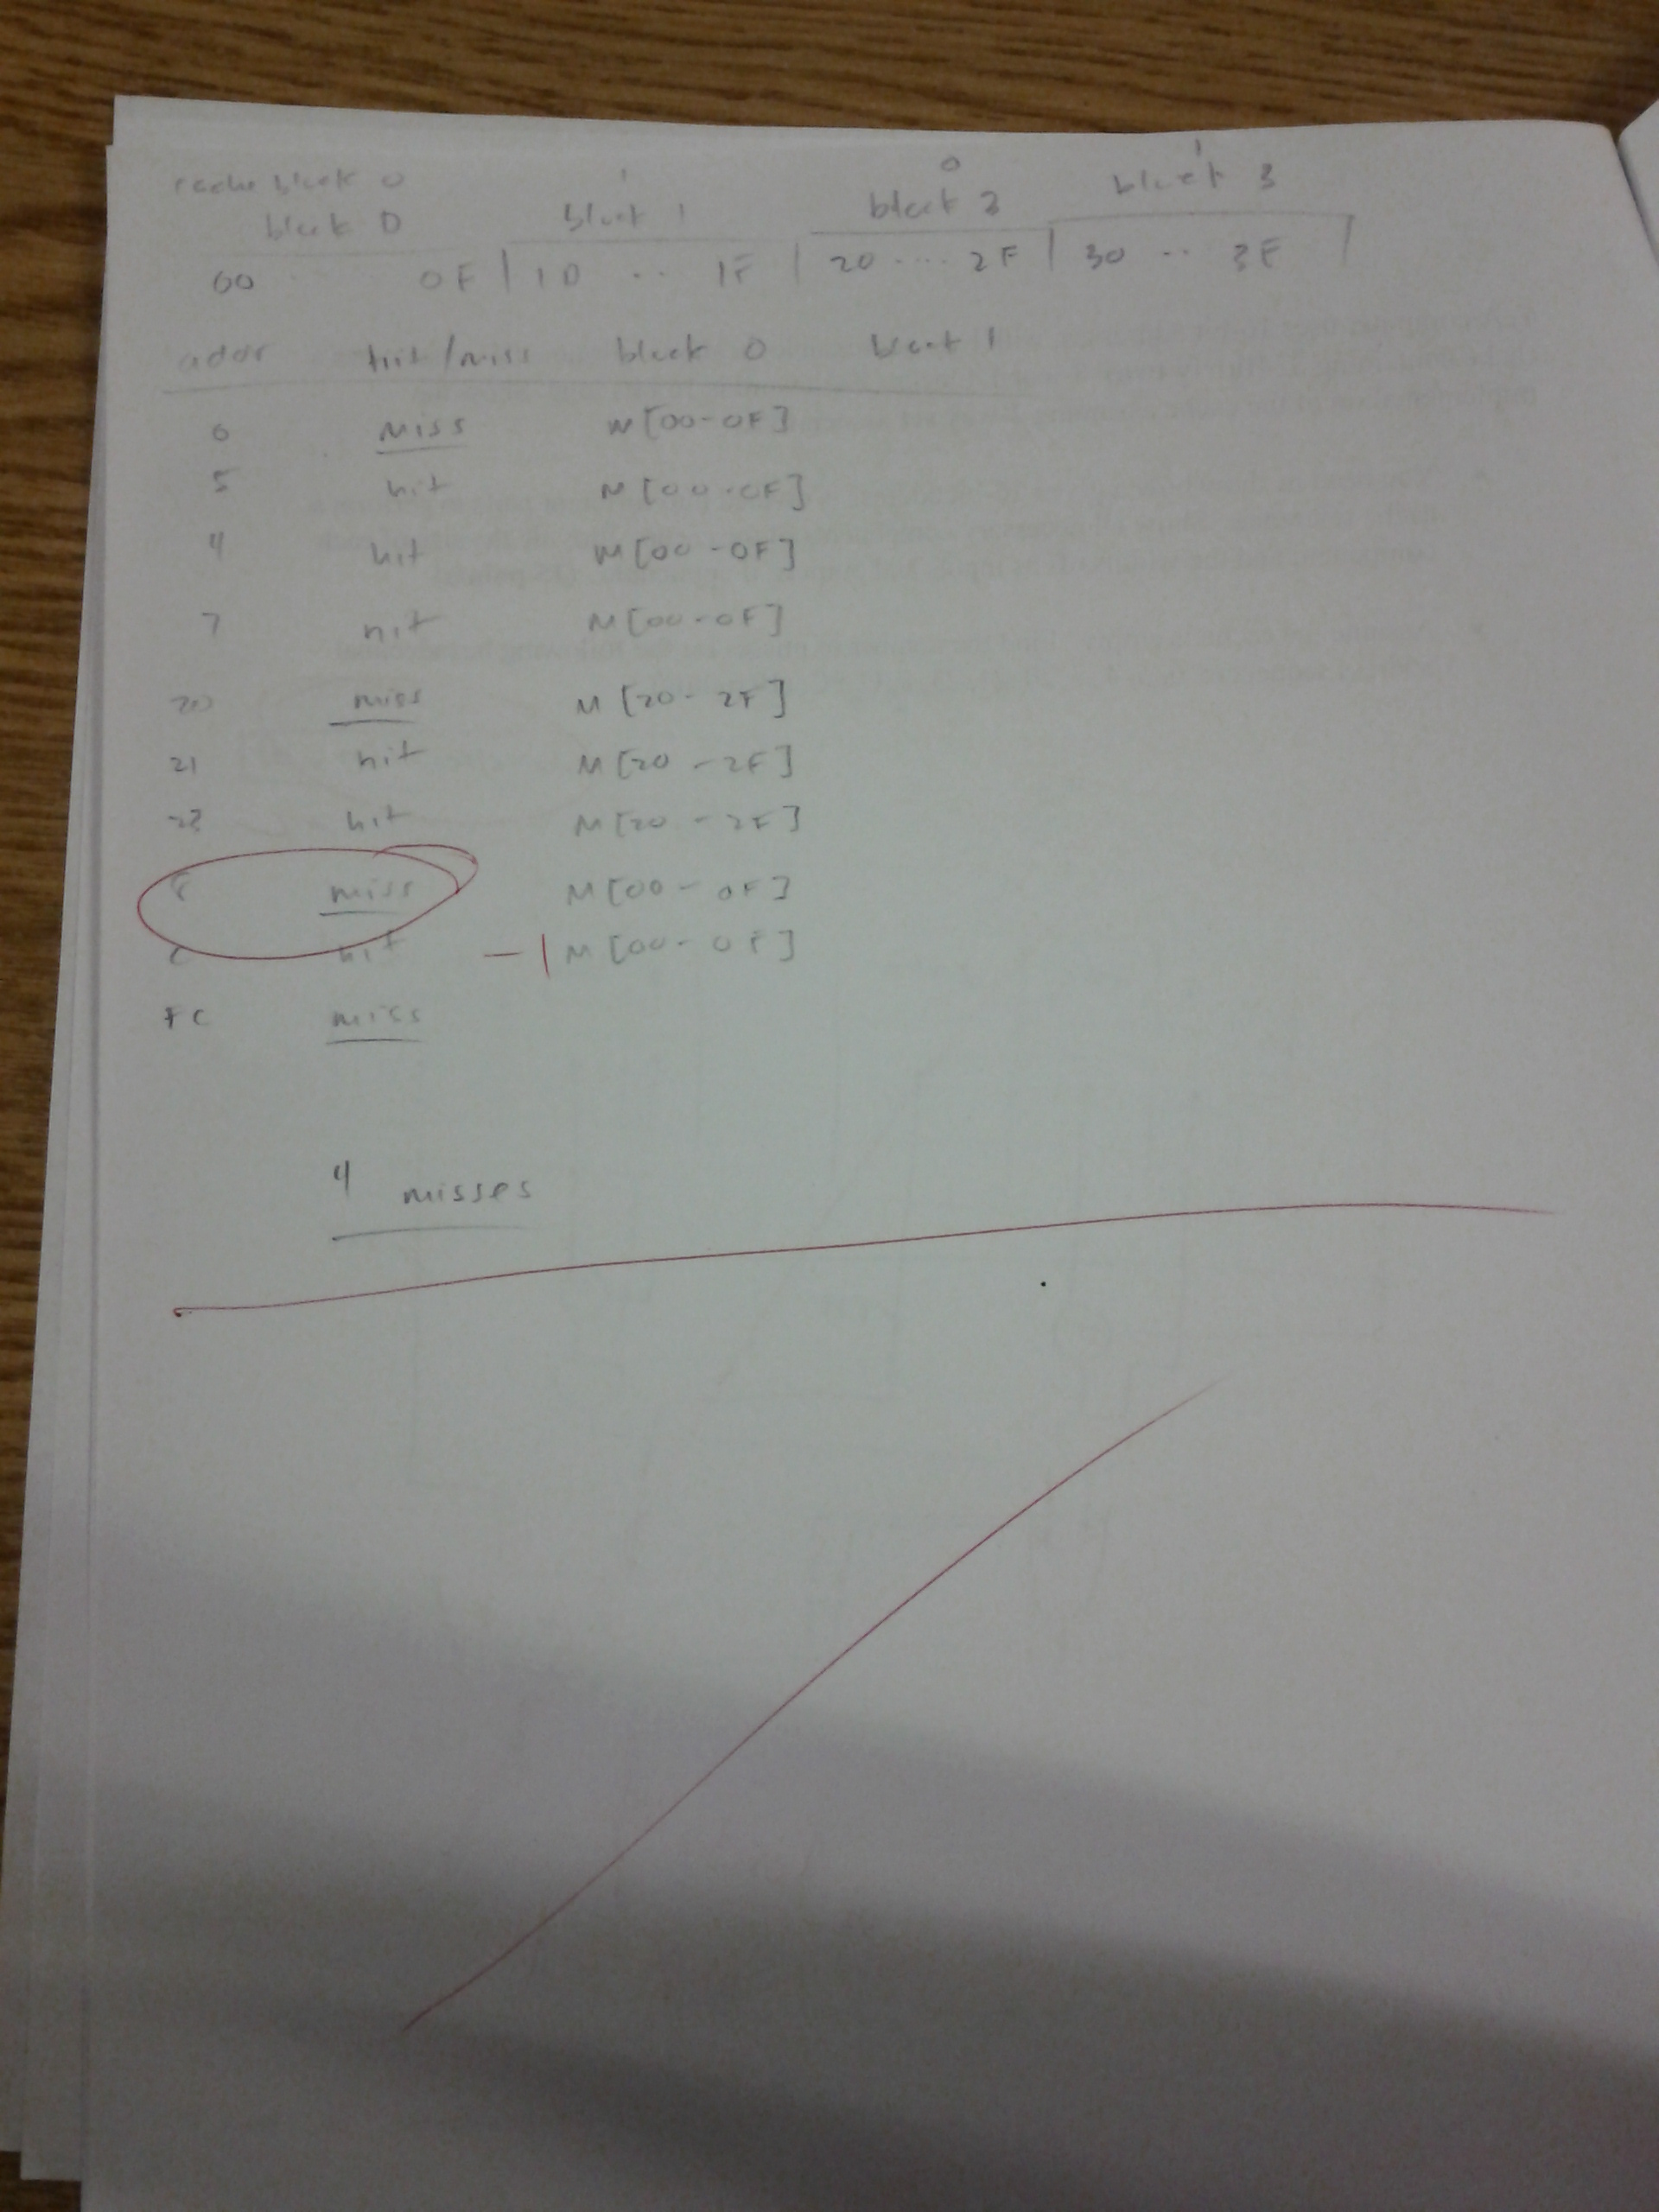 cache block 0 1 0 1
block 0 block 1 block 2 block 3
00 0F | 10 .. 1F | 20 .... 2F | 30 .. 3F |
addr hit/miss block 0 block 1
0 miss M[00-0F]
5 hit M[00-0F]
4 hit M[00-0F]
7 hit M[00-0F]
20 miss M[20-2F]
21 hit M[20-2F]
22 hit M[20-2F]
8 miss M[00-0F]
hit -1 M[00-0F]
FC miss
4 misses